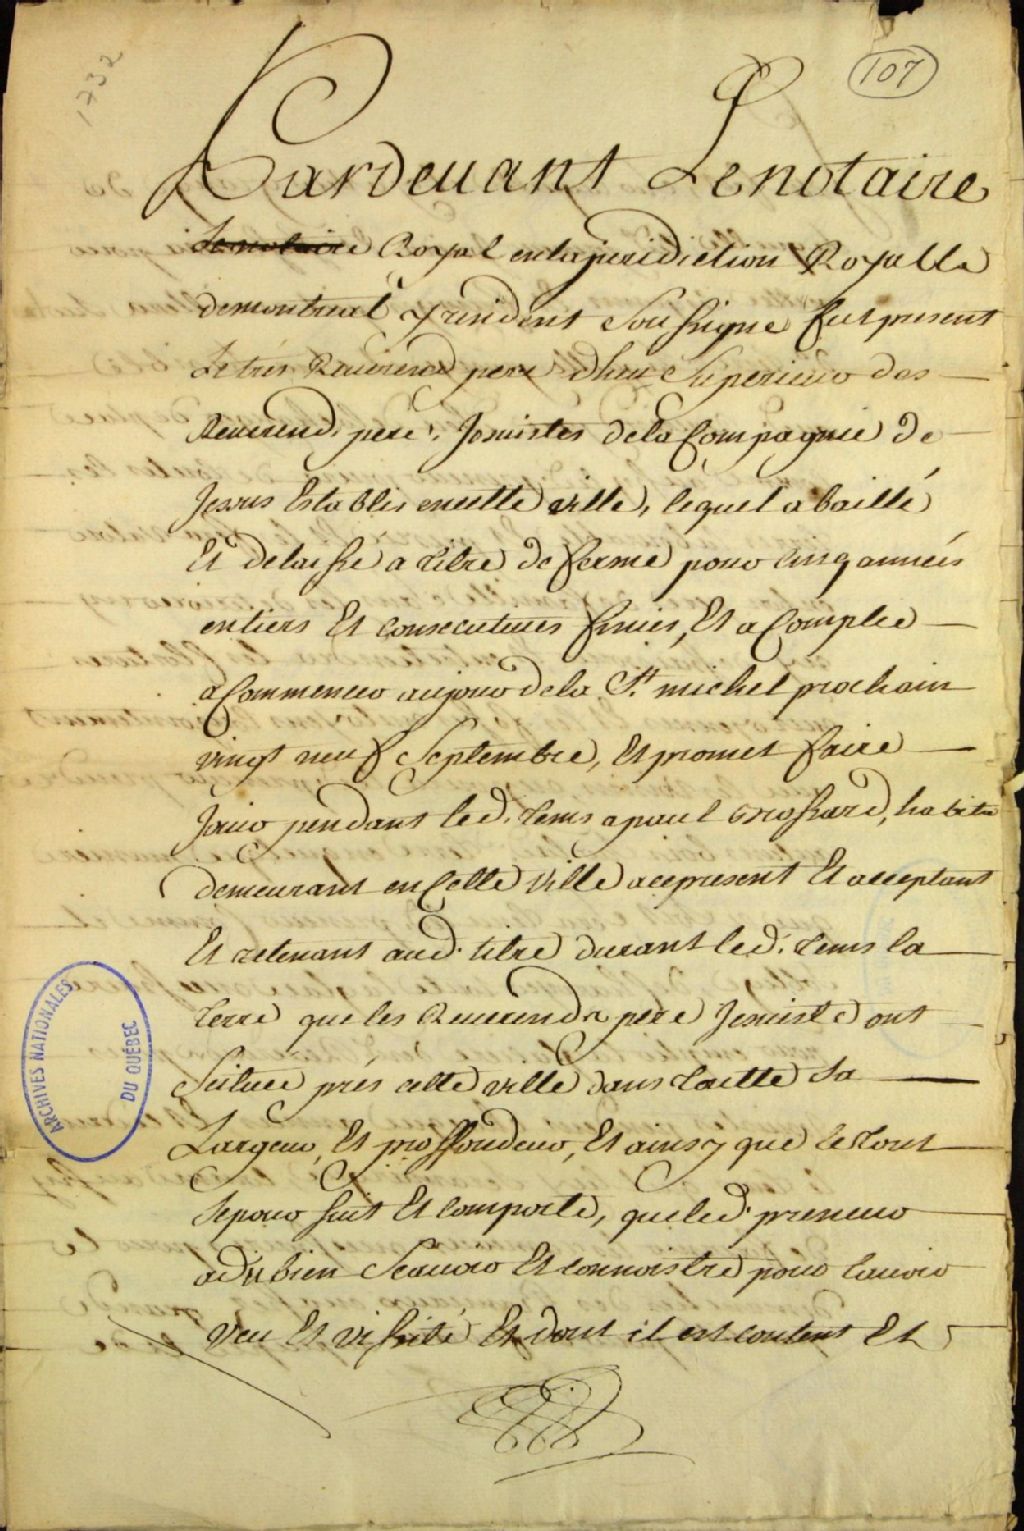 1732
107
Pardevant Le notaire
Le notaire Royal en la juridiction Royalle
de montreal y resident Soussigne fut present
Le tres Reverend pere dheu Superieur des
Reverend. pere. Jesuistes de la Compagnie de
Jesus Establis en cette ville, lequel a baillé
Et delaissé a titre de ferme pour cinq années
entiers Et consecutives finies, Et acomplie
a Commencer au jour de la St. michel prochain
vingt neuf Septembre, Et promet faire
Jouir pendant led. tems a paul brossard, habita
demeurant en Cette Ville a ce present Et acceptant
Et retenant aud. titre durant led. tems la
terre que les Reverends pere Jesuiste ont
Scituee prés cette ville dans toutte Sa
Largeur, Et proffondeur, Et ainsy que le tout
Se pour suit Et comporte, que led. preneur
a dit bien Scavoir Et connoistre pour lavoir
veu Et visitté Et dont il est content Et
ARCHIVES NATIONALES
DU QUÉBEC